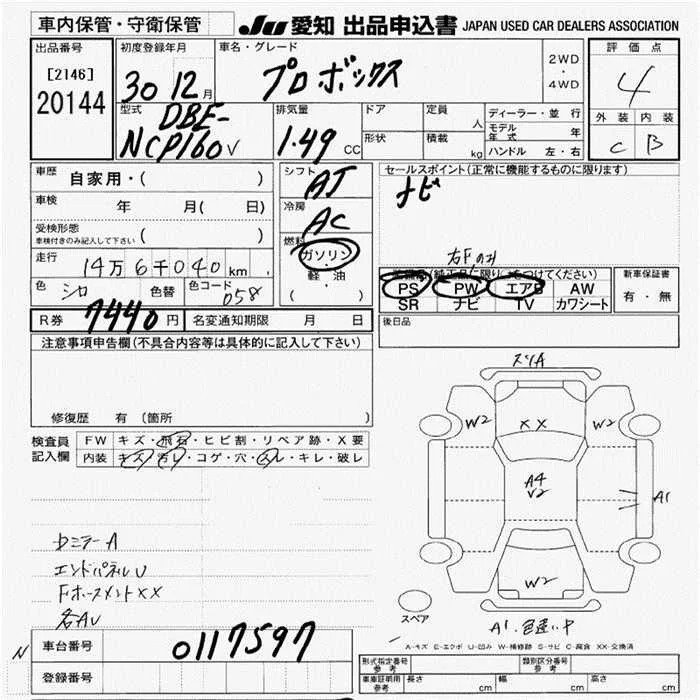 車内保管・守衛保管
JU 愛知 出品申込書 JAPAN USED CAR DEALERS ASSOCIATION
出品番号
[2146]
20144
初度登録年月
30 12月
車名・グレード
プロボックス
2WD
・
4WD
評価点
4
外装 内装
C B
型式
DBE-
NCP160V
排気量
1.49 CC
ドア
形状
定員 人
積載 kg
ディーラー・並行
モデル年式 年
ハンドル 左・右
車歴 自家用・( )
車検 年 月( 日)
受検形態
車検付きのみ記入して下さい ( )
走行 14万6千040km
色 シロ 色替 色コード 058
シフト AT
冷房 AC
燃料
ガソリン
・
軽油
( )
セールスポイント(正常に機能するものに限ります)
ナビ
右Fのみ
装備品(純正品に限り○をつけてください)
PS PW エアB AW
SR ナビ TV カワシート
新車保証書
有・無
R券 7440円 名変通知期限 月 日
後日品
注意事項申告欄(不具合内容等は具体的に記入して下さい)
修復歴 有 (箇所 )
検査員記入欄
FW キズ・飛石・ヒビ割・リペア跡・X要
内装 キズ・汚レ・コゲ・穴・スレ・キレ・破レ
スリA
W2 XX W2
A4
V2
A1
W2
スペア
A1.色違い中
A-キズ E-エクボ U-凹み W-補修跡 S-サビ C-腐食 XX-交換済
ドミラーA
エンドパネルU
FホースメントXX
各AU
N 車台番号 0117597
登録番号
形式指定番号 参考
類別区分番号 参考
車庫証明用 参考 長さ cm 幅 cm 高さ cm